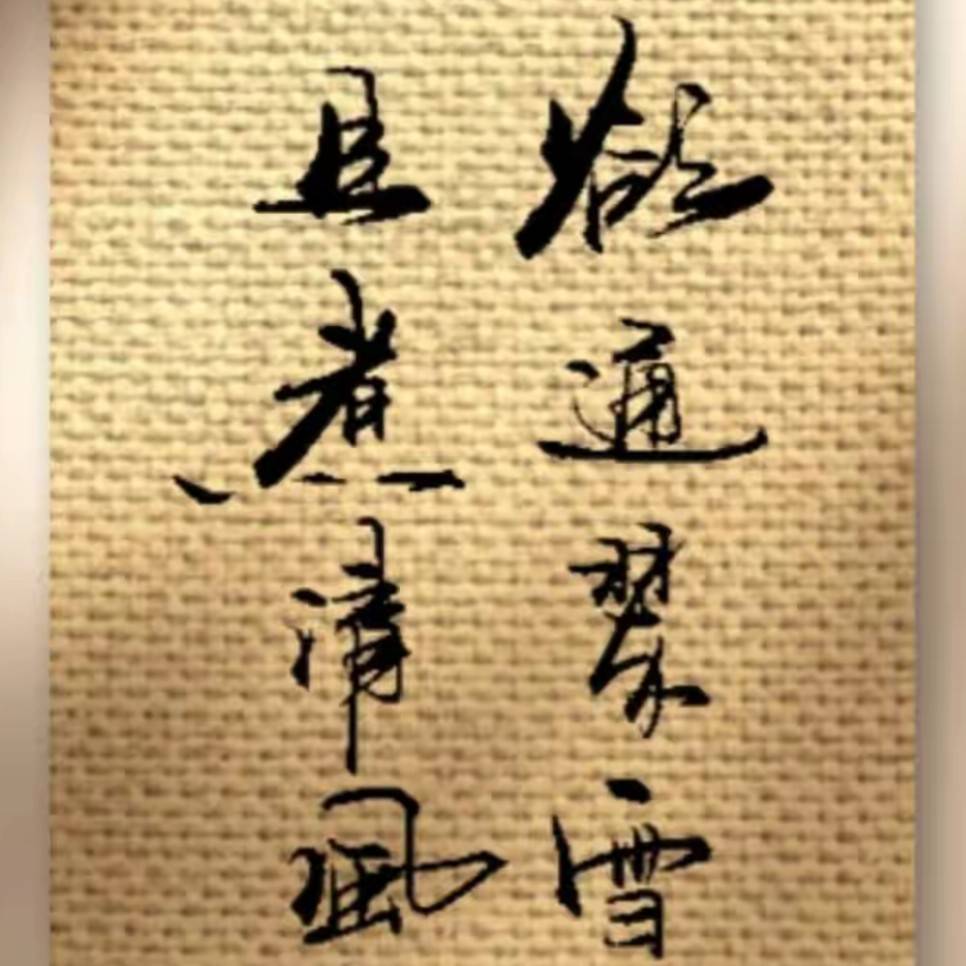 欲通琴雪
且煮清風